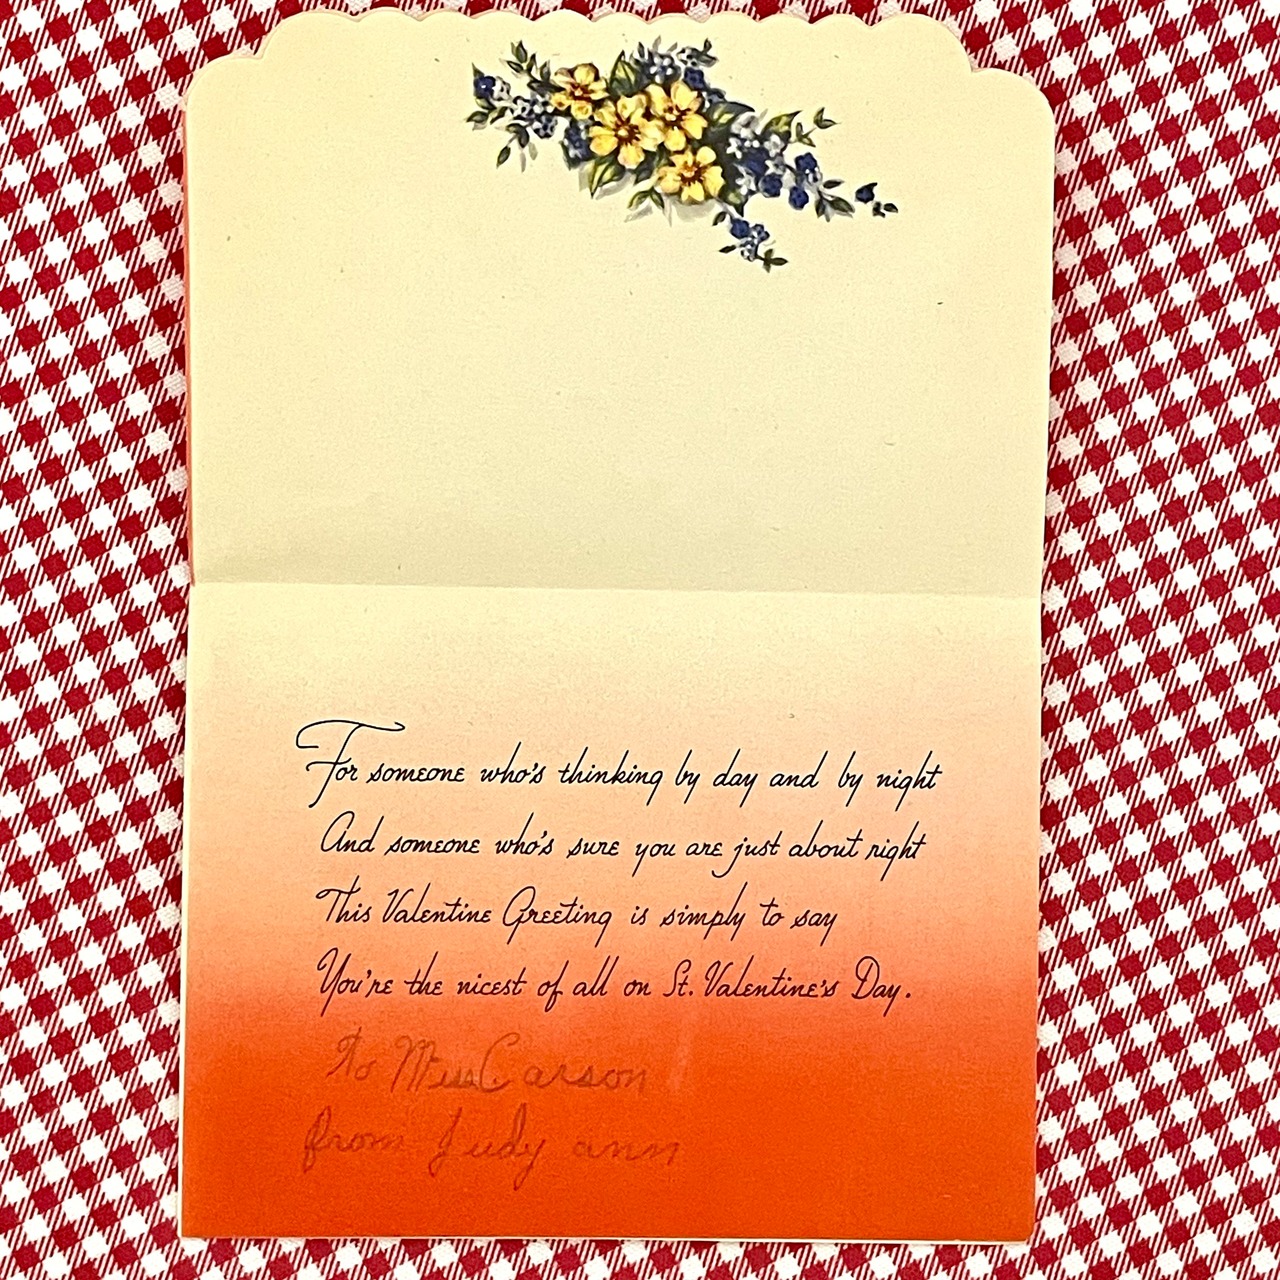 For someone who's thinking by day and by night
And someone who's sure you are just about right
This Valentine Greeting is simply to say
You're the nicest of all on St. Valentine's Day.
To Miss Carson
from Judy ann